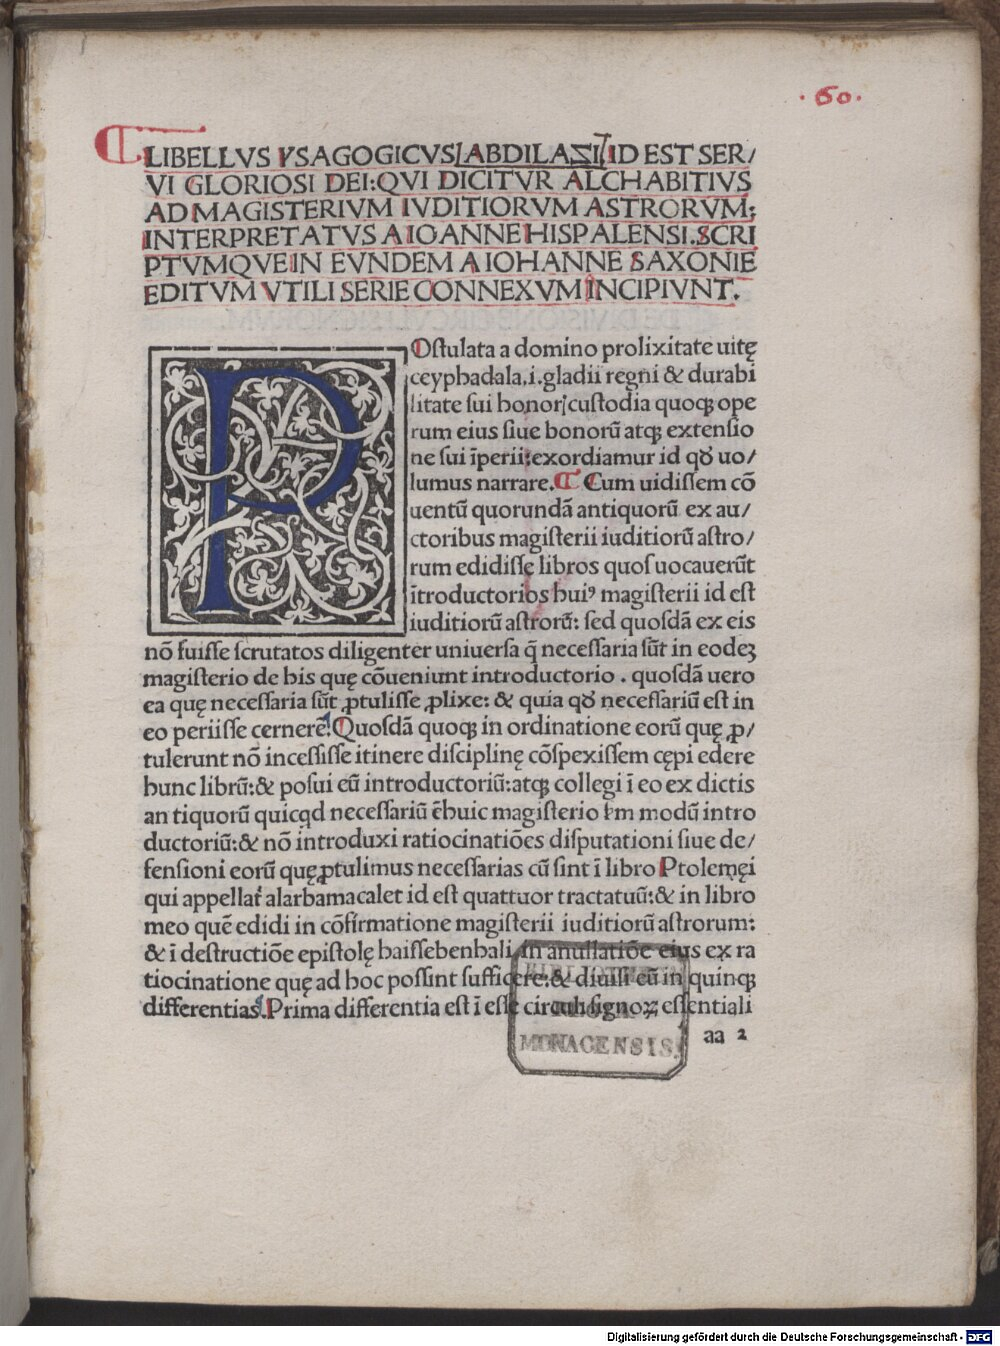 ·60·
LIBELLVS YSAGOGICVS ABDILAZI ID EST SER/
VI GLORIOSI DEI:QVI DICITVR ALCHABITIVS
AD MAGISTERIVM IVDITIORVM ASTRORVM:
INTERPRETATVS A IOANNE HISPALENSI.SCRI
PTVMQVE IN EVNDEM A IOHANNE SAXONIE
EDITVM VTILI SERIE CONNEXVM INCIPIVNT.
POstulata a domino prolixitate uitę
ceyphadala.i.gladii regni & durabi
litate sui honoris custodia quoqꝫ ope
rum eius siue bonorū atqꝫ extensio
ne sui īperii:exordiamur id qđ uo/
lumus narrare. Cum uidissem cō
uentū quorundā antiquorū ex au/
ctoribus magisterii iuditiorū astro/
rum edidisse libros quos uocauerūt
ītroductorios huiꝰ magisterii id est
iuditiorū astrorū: sed quosdā ex eis
nō fuisse scrutatos diligenter uniuersa q̄ necessaria sūt in eodeꝫ
magisterio de his quę cōueniunt introductorio . quosdā uero
ea quę necessaria sūt ꝓtulisse ꝓlixe: & quia qđ necessariū est in
eo periisse cernerē! Quosdā quoqꝫ in ordinatione eorū quę ꝓ/
tulerunt nō incessisse itinere disciplinę cōspexissem cępi edere
hunc librū:& posui eū introductoriū:atqꝫ collegi ī eo ex dictis
an tiquorū quicqd necessariū ē huic magisterio ẜm modū intro
ductoriū:& nō introduxi ratiocinatiōes disputationi siue de/
fensioni eorū quę ꝓtulimus necessarias cū sint ī libro Ptolemęi
qui appellat̄ alarbamacalet id est quattuor tractatuū:& in libro
meo quē edidi in cōfirmatione magisterii iuditiorū astrorum:
& ī destructiōe epistolę haissebenhali in anullatiōe eius ex ra
tiocinatione quę ad hoc possint sufficere:& diuisi eū in quinqꝫ
differentias. Prima differentia est ī esse circuli signoꝝ essentiali
aa 2
MONACENSIS.
Digitalisierung gefördert durch die Deutsche Forschungsgemeinschaft - DFG